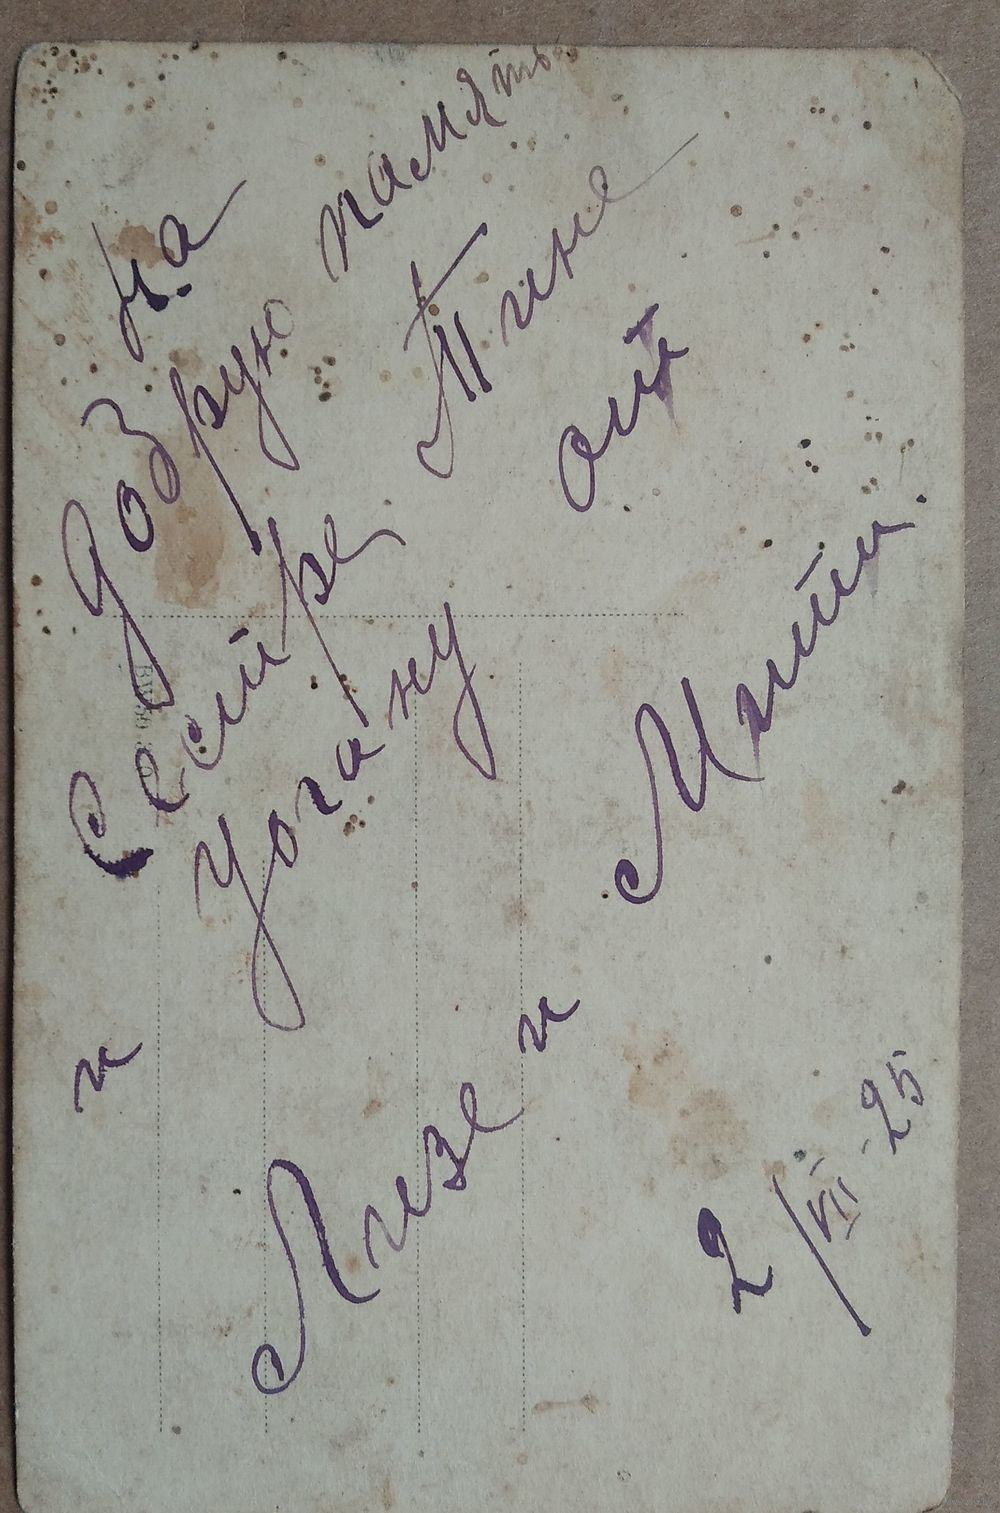 на
добрую память
Сестре Тине
и Уогану от
Лизе и Мити.
2/VII-25